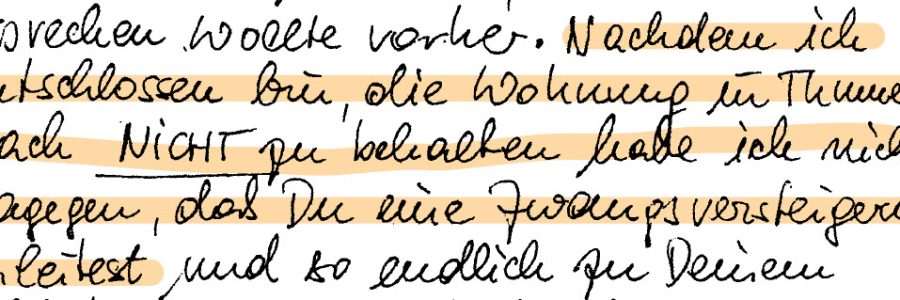 sprechen wollte vorher. Nachdem ich
ntschlossen bin, die Wohnung in Thume
ach NICHT zu behalten habe ich nich
agegen, daß Du eine Zwangsversteigeru
nleitest und so endlich zu Deinem